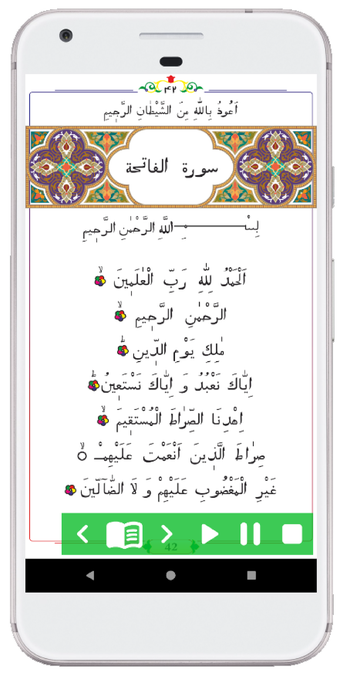 ۴۲
اَعُوذُ بِاللّٰهِ مِنَ الشَّيْطَانِ الرَّجِيمِ
سورة الفاتحة
بِسْمِ اللّٰهِ الرَّحْمٰنِ الرَّحِيمِ
اَلْحَمْدُ لِلّٰهِ رَبِّ الْعٰلَمِينَ
الرَّحْمٰنِ الرَّحِيمِ
مٰلِكِ يَوْمِ الدِّينِ
اِيَّاكَ نَعْبُدُ وَ اِيَّاكَ نَسْتَعِينُ
اِهْدِنَا الصِّرَاطَ الْمُسْتَقِيمَ
صِرَاطَ الَّذِينَ اَنْعَمْتَ عَلَيْهِمْ
غَيْرِ الْمَغْضُوبِ عَلَيْهِمْ وَ لَا الضَّآلِّينَ
42